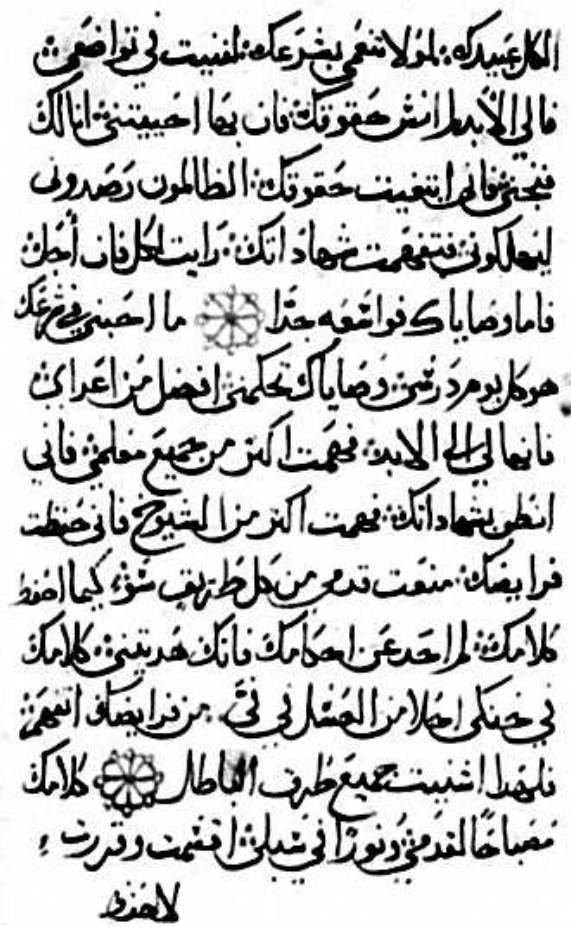 الكل عبيدك: لولا تنعمي بشرعك: لفنيت في تواضعي:
فالى الأبد لم انس حقوقك: فان بها احييتني: انا لك
فنجني فاني ابتغيت حقوقك: الظالمون رصدوني
ليهلكوني: فتفهمت شهاداتك: رايت لكل فان أجل:
فاما وصاياك فواسعه جدًا ما احبني في شرعك
هو كل يوم درسي: وصاياك تحكمني افضل من اعداي:
فانها لي الى الابد: فهمت اكثر من جميع معلمي: فاني
انطق بشهاداتك: فهمت اكثر من الشيوخ فاني حفظت
فرايضك: منعت قدمي من كل طريق سؤ، كيما احفظ
كلامك: لم احد عن احكامك فانك هديتني: كلامك
في حنكي احلا من العسل في فيَّ: من فرايضك انتهمت:
فلهذا اشنيت جميع طرق الباطل كلامك
مصباحًا لقدمي: ونورًا في سبلي: اقسمت وقررت:
لاحفظ